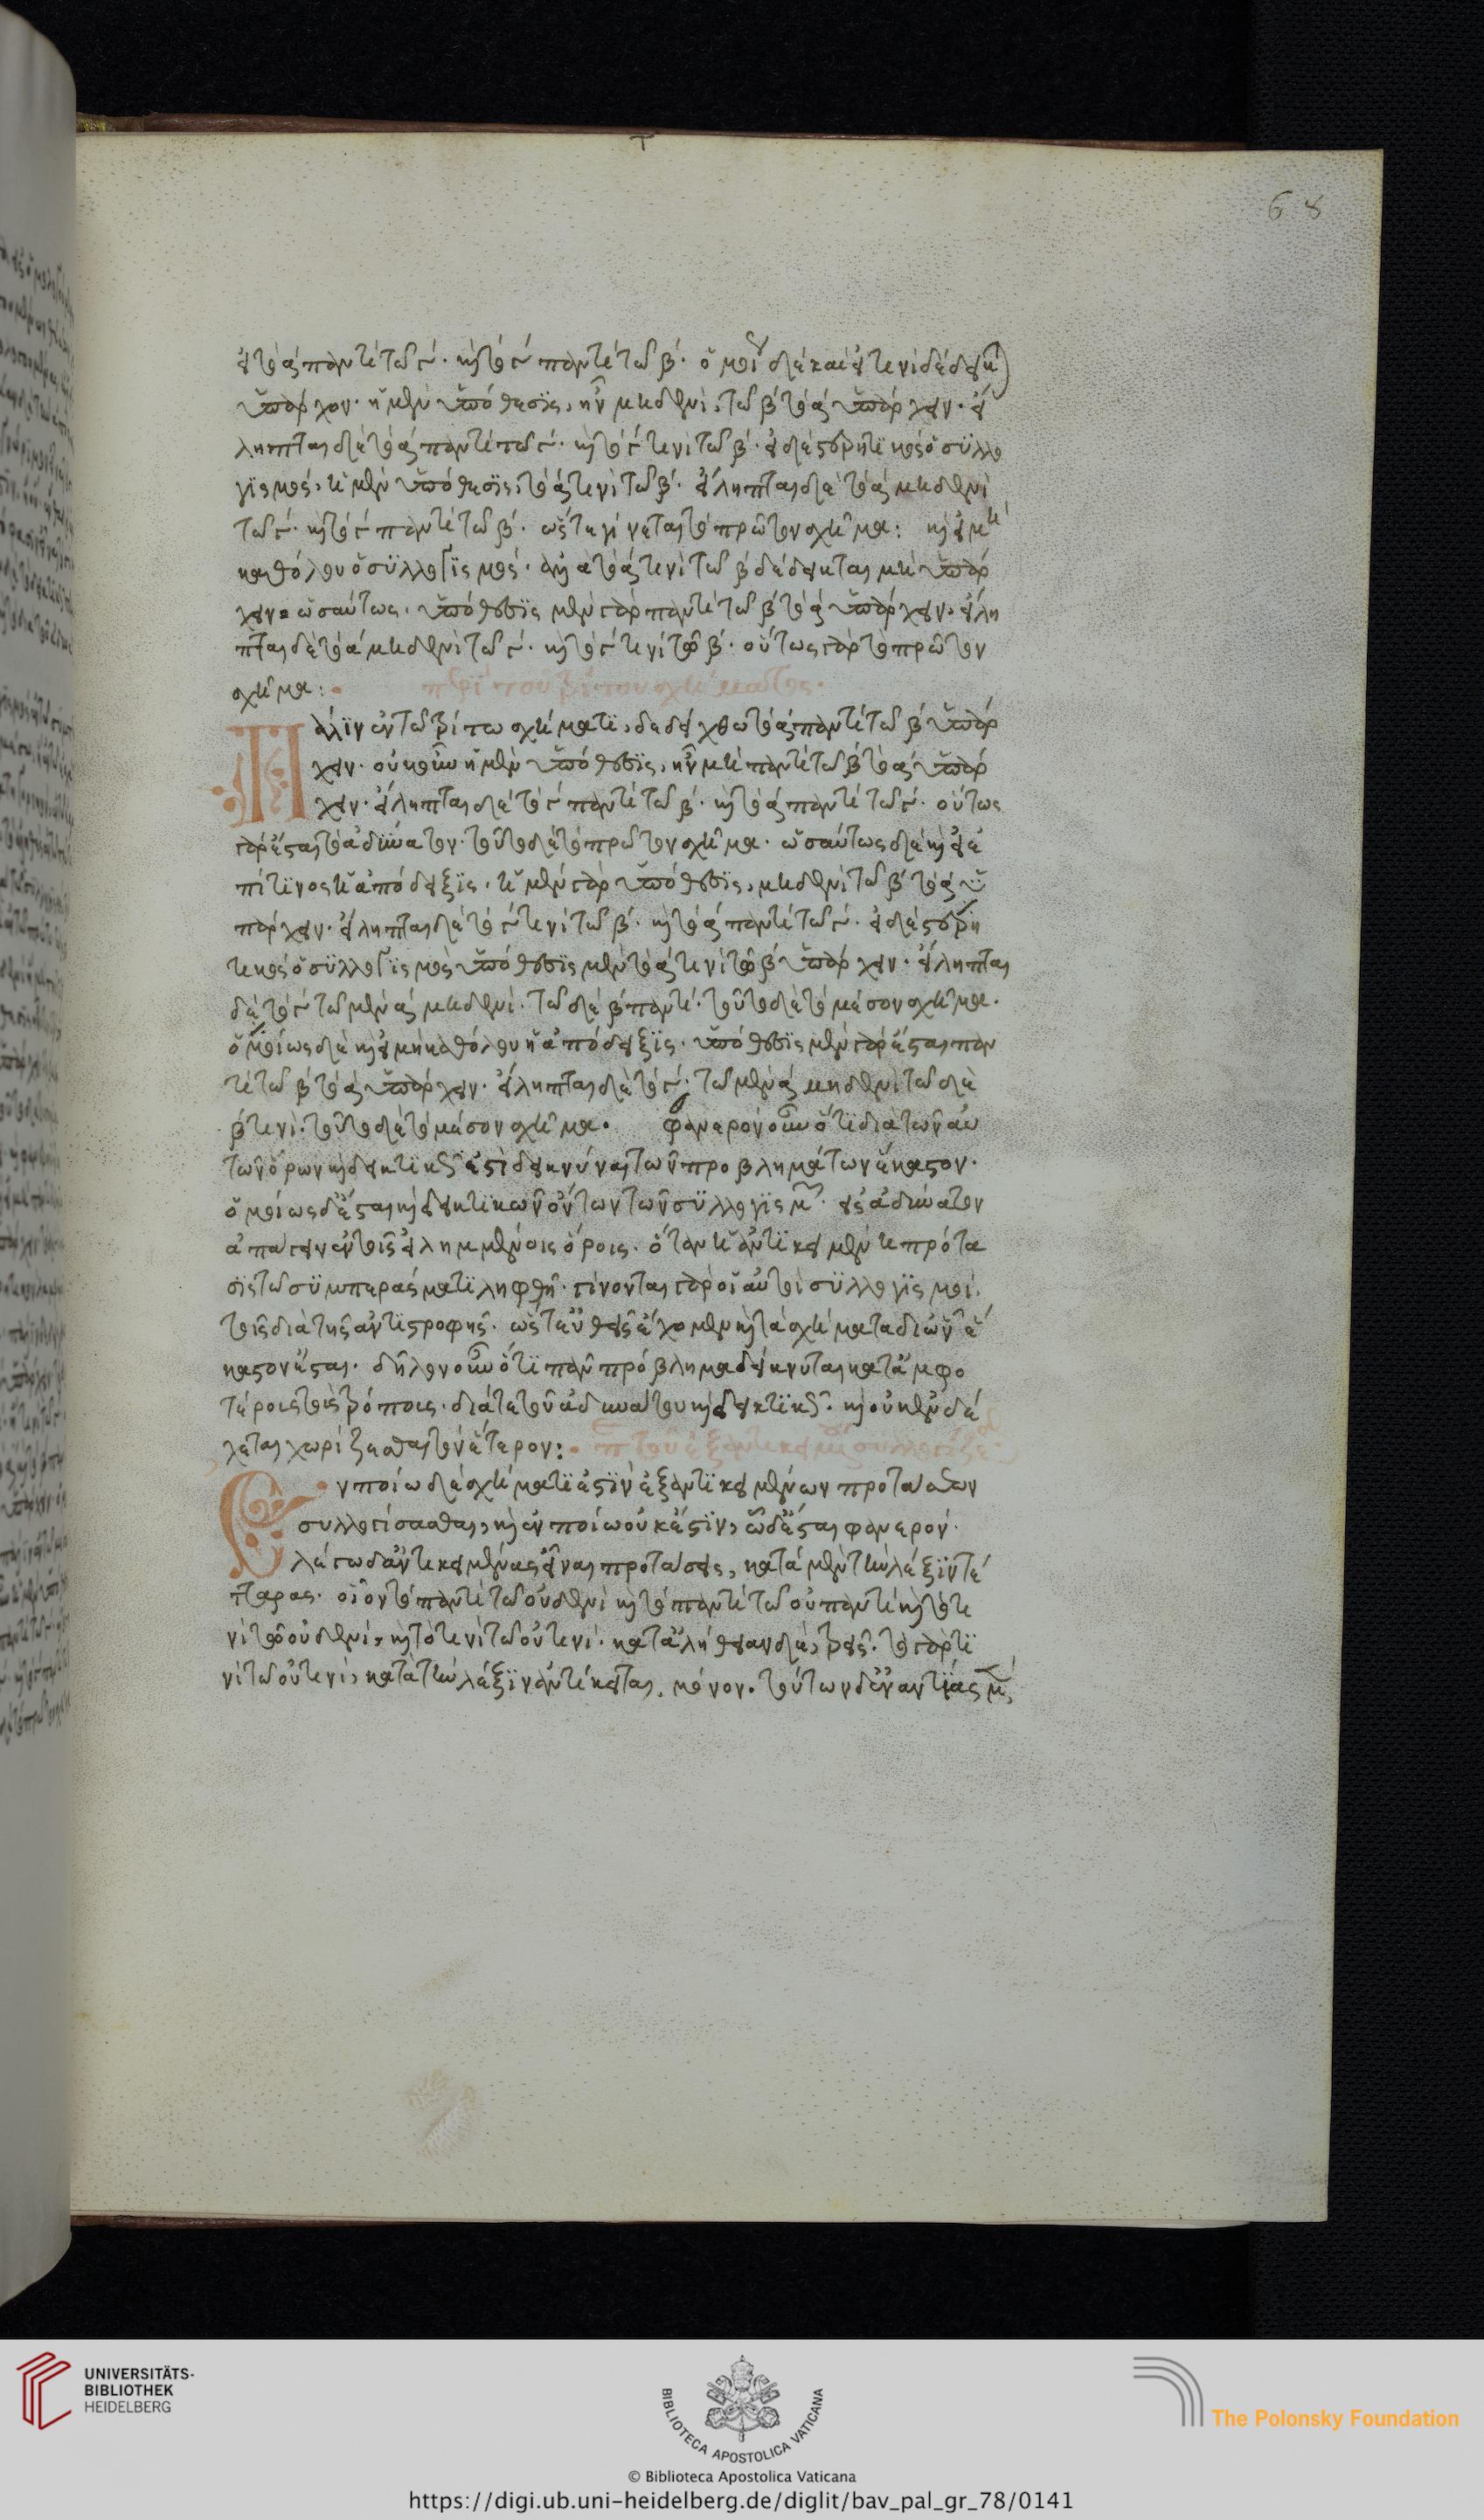 εἰ τὸ α παντὶ τῷ γ· καὶ τὸ γ παντὶ τῷ β· ὁμοί δὲ καὶ εἰ τινὶ δέδεικ(ται)
ὑπάρχον· ἡ μὲν ὑπόθεσις, ἦν μηδενὶ, τῷ β τὸ α ὑπάρχειν· εἴ
ληπται δὲ τὸ α παντὶ τῷ γ· καὶ τὸ γ τινὶ τῷ β· εἰ δὲ στερητικὸς ὁ συλλο
γισμός, ἡ μὲν ὑπόθεσις, τὸ α τινὶ τῷ β· εἴληπται δὲ τὸ α μηδενὶ
τῷ γ· καὶ τὸ γ παντὶ τῷ β· ὥστε γίνεται τὸ πρῶτον σχῆμα: καὶ εἰ μὴ
καθόλου ὁ συλλογισμός· ἀλλὰ τὸ α τινὶ τῷ β δέδεικται μὴ ὑπάρ
χειν· ὡσαύτως· ὑπόθεσις μὲν γὰρ παντὶ τῷ β τὸ α ὑπάρχειν· εἴλη
πται δὲ τὸ α μηδενὶ τῷ γ· καὶ τὸ γ τινὶ τῷ β· οὕτως γὰρ τὸ πρῶτον
σχῆμα: περὶ τοῦ β΄ του σχήματος·
Πάλιν ἐν τῷ β΄τω σχήματι, δεδείχθω τὸ α παντὶ τῷ β ὑπάρ
χειν· οὐκοῦν ἡ μὲν ὑπόθεσις, ἦν μὴ παντὶ τῷ β τὸ α ὑπάρ
χειν· εἴληπται δὲ τὸ γ παντὶ τῷ β· καὶ τὸ α παντὶ τῷ γ· οὕτως
γὰρ ἔσται τὸ ἀδύνατον· τοῦτο δὲ τὸ πρῶτον σχῆμα· ὡσαύτως δὲ καὶ εἰ ἐ
πί τινος ἡ ἀπόδειξις· ἡ μὲν γὰρ ὑπόθεσις, μηδενὶ τῷ β τὸ α ὑ
πάρχειν· εἴληπται δὲ τὸ γ τινὶ τῷ β· καὶ τὸ α παντὶ τῷ γ· εἰ δὲ στερη
τικὸς ὁ συλλογισμὸς ὑπόθεσις μὲν τὸ α τινὶ τῷ β ὑπάρχειν· εἴληπται
δὲ τὸ γ τῷ μὲν α μηδενὶ· τῷ δὲ β παντὶ· τοῦτο δὲ τὸ μέσον σχῆμα·
ὁμοίως δὲ καὶ εἰ μὴ καθόλου ἡ ἀπόδειξις· ὑπόθεσις μὲν γὰρ ἔσται παν
τὶ τῷ β τὸ α ὑπάρχειν· εἴληπται δὲ τὸ γ· τῷ μὲν α μηδενὶ τῷ δὲ
β τινὶ· τοῦτο δὲ τὸ μέσον σχῆμα· φανερὸν οὖν ὅτι διὰ τῶν αὐ
τῶν ὅρων καὶ δεικτικῶς ἐστὶ δεικνύναι τῶν προβλημάτων ἕκαστον·
ὁμοίως δ' ἔσται καὶ δεικτικῶν ὄντων τῶν συλλογισμῶν· εἰς ἀδύνατον
ἀπάγειν ἐν τοῖς εἰλημμένοις ὅροις· ὅταν ἡ ἀντικειμένη πρότα
σις τῷ συμπεράσματι ληφθῇ· γίνονται γὰρ οἱ αὐτοὶ συλλογισμοὶ·
τοῖς διὰ τῆς ἀντιστροφῆς· ὥστ' εὐθὺς ἔχομεν καὶ τὰ σχήματα δι' ὧν ἕ
καστον ἔσται· δῆλον οὖν ὅτι πᾶν πρόβλημα δείκνυται κατ' ἀμφο
τέρους τοὺς τρόπους· διά τε τοῦ ἀδυνάτου καὶ δεικτικῶς· καὶ οὐκ ἐνδέ
χεται χωρίζεσθαι τὸν ἕτερον: π τοῦ ἐξ ἀντικειμένων συλλογίζε
Ἐν ποίῳ δὲ σχήματι ἔστιν ἐξ ἀντικειμένων προτάσεων
συλλογίσασθαι, καὶ ἐν ποίῳ οὐκ ἔστιν, ὧδ' ἔσται φανερόν·
λέγω δ' ἀντικειμένας εἶναι προτάσεις, κατὰ μὲν τὴν λέξιν τέ
τταρας· οἷον τὸ παντὶ τῷ οὐδενὶ καὶ τὸ παντὶ τῷ οὐ παντὶ καὶ τὸ τι
νὶ τῷ οὐδενὶ, καὶ τὸ τινὶ τῷ οὐ τινὶ· κατ' ἀλήθειαν δὲ, τρεῖς· τὸ γὰρ τι
νὶ τῷ οὐ τινὶ, κατὰ τὴν λέξιν ἀντίκειται, μόνον· τούτων δ' ἐναντίας μ
68
UNIVERSITÄTS-
BIBLIOTHEK
HEIDELBERG
BIBLIOTECA APOSTOLICA VATICANA
The Polonsky Foundation
© Biblioteca Apostolica Vaticana
https://digi.ub.uni-heidelberg.de/diglit/bav_pal_gr_78/0141